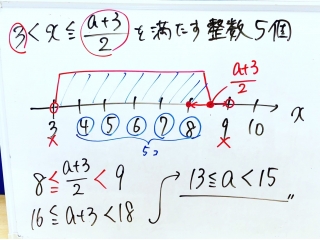 3 < x ≦ (a+3)/2 を満たす整数5個
(a+3)/2
3 4 5 6 7 8 9 10 x
5コ
8 ≦ (a+3)/2 < 9
16 ≦ a+3 < 18
13 ≦ a < 15